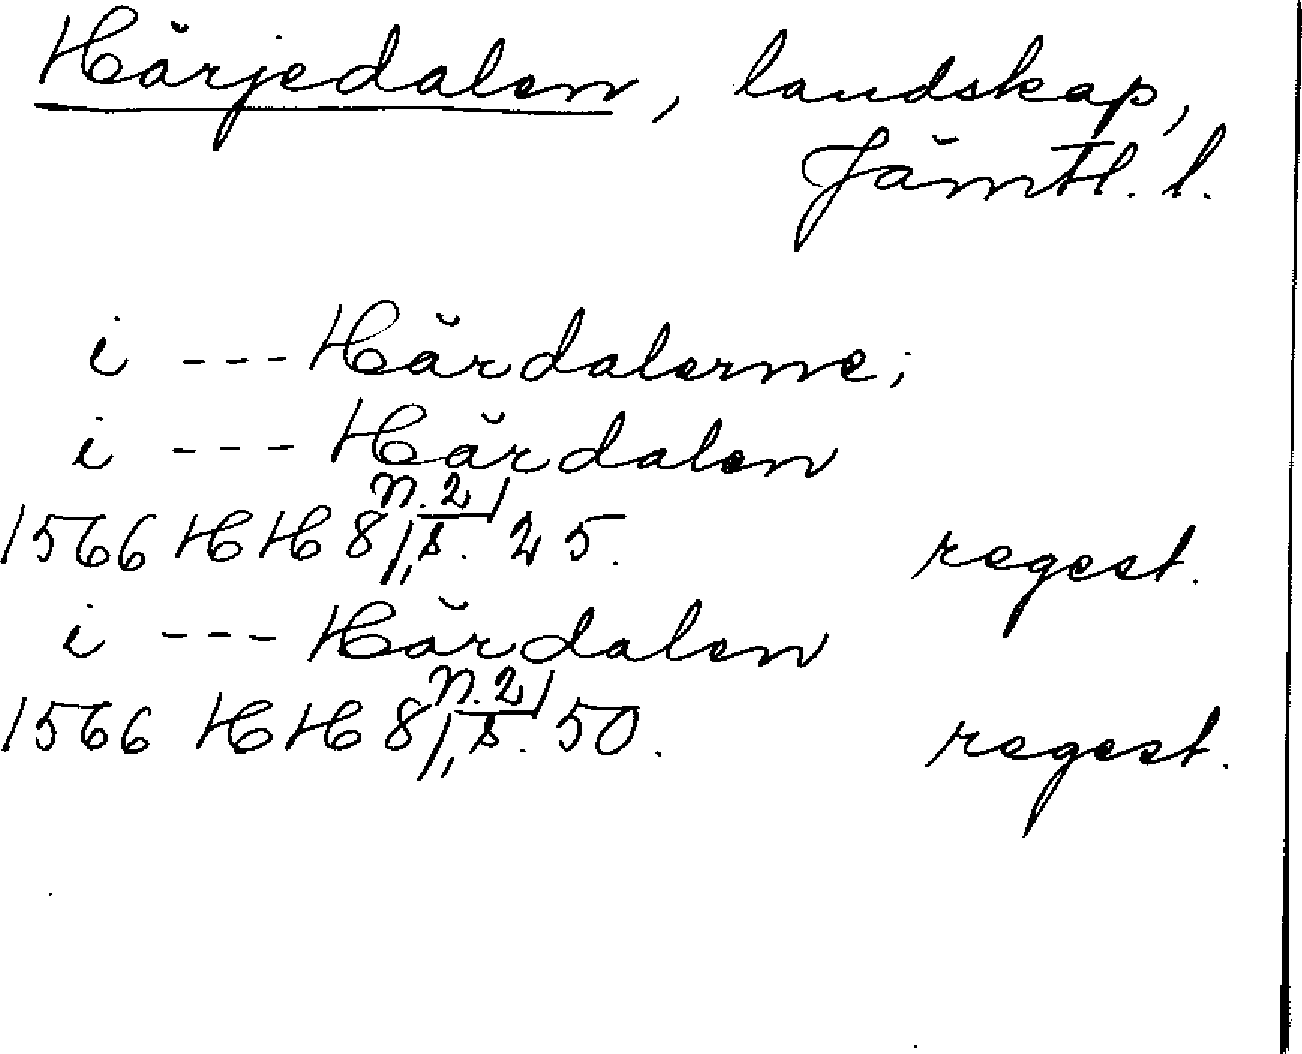 Härjedalen, landskap,
Jämtl. l.
i --- Härdalerne;
i --- Härdalen
1566 HH 8/, n. 2/ s. 25. regest.
i --- Härdalen
1566 HH 8/, n. 2/ s. 50. regest.